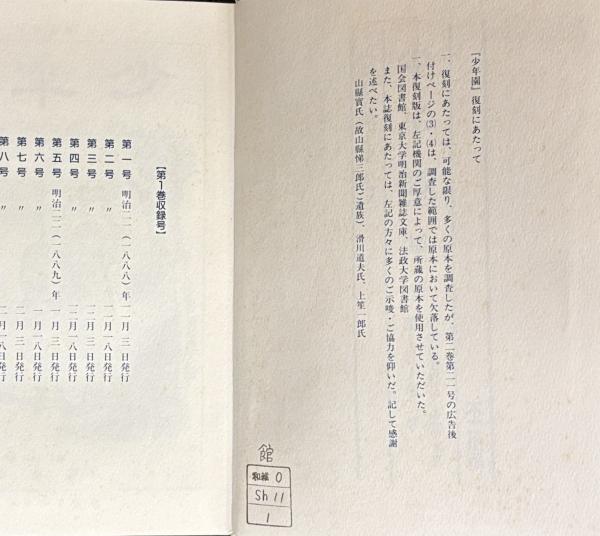 『少年園』復刻にあたって
一、復刻にあたっては、可能な限り、多くの原本を調査したが、第二巻第二一号の広告後
付けページの(3)・(4)は、調査した範囲では原本において欠落している。
一、本復刻版は、左記機関のご厚意によって、所蔵の原本を使用させていただいた。
国会図書館、東京大学明治新聞雑誌文庫、法政大学図書館
また、本誌復刻にあたっては、左記の方々に多くのご示唆・ご協力を仰いだ。記して感謝
を述べたい。
山縣實氏(故山縣悌三郎氏ご遺族)、滑川道夫氏、上笙一郎氏
館
和雑 0
Sh 11
1
【第1巻収録号】
第一号 明治二一(一八八八)年 一一月 三日発行
第二号 〃 一一月一八日発行
第三号 〃 一二月 三日発行
第四号 〃 一二月一八日発行
第五号 明治二二(一八八九)年 一月 三日発行
第六号 〃 一月一八日発行
第七号 〃 二月 三日発行
第八号 〃 二月一八日発行